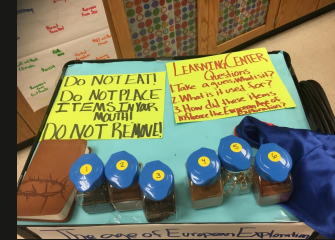 DO NOT EAT!
DO NOT PLACE
ITEMS IN YOUR
MOUTH!
DO NOT REMOVE!
LEARNING CENTER
Questions
1. Take a guess. What is it?
2. What is it used for?
3. How did these items
influence the European Age of
Exploration?
1
2
3
4
5
6
The age of European Exploration